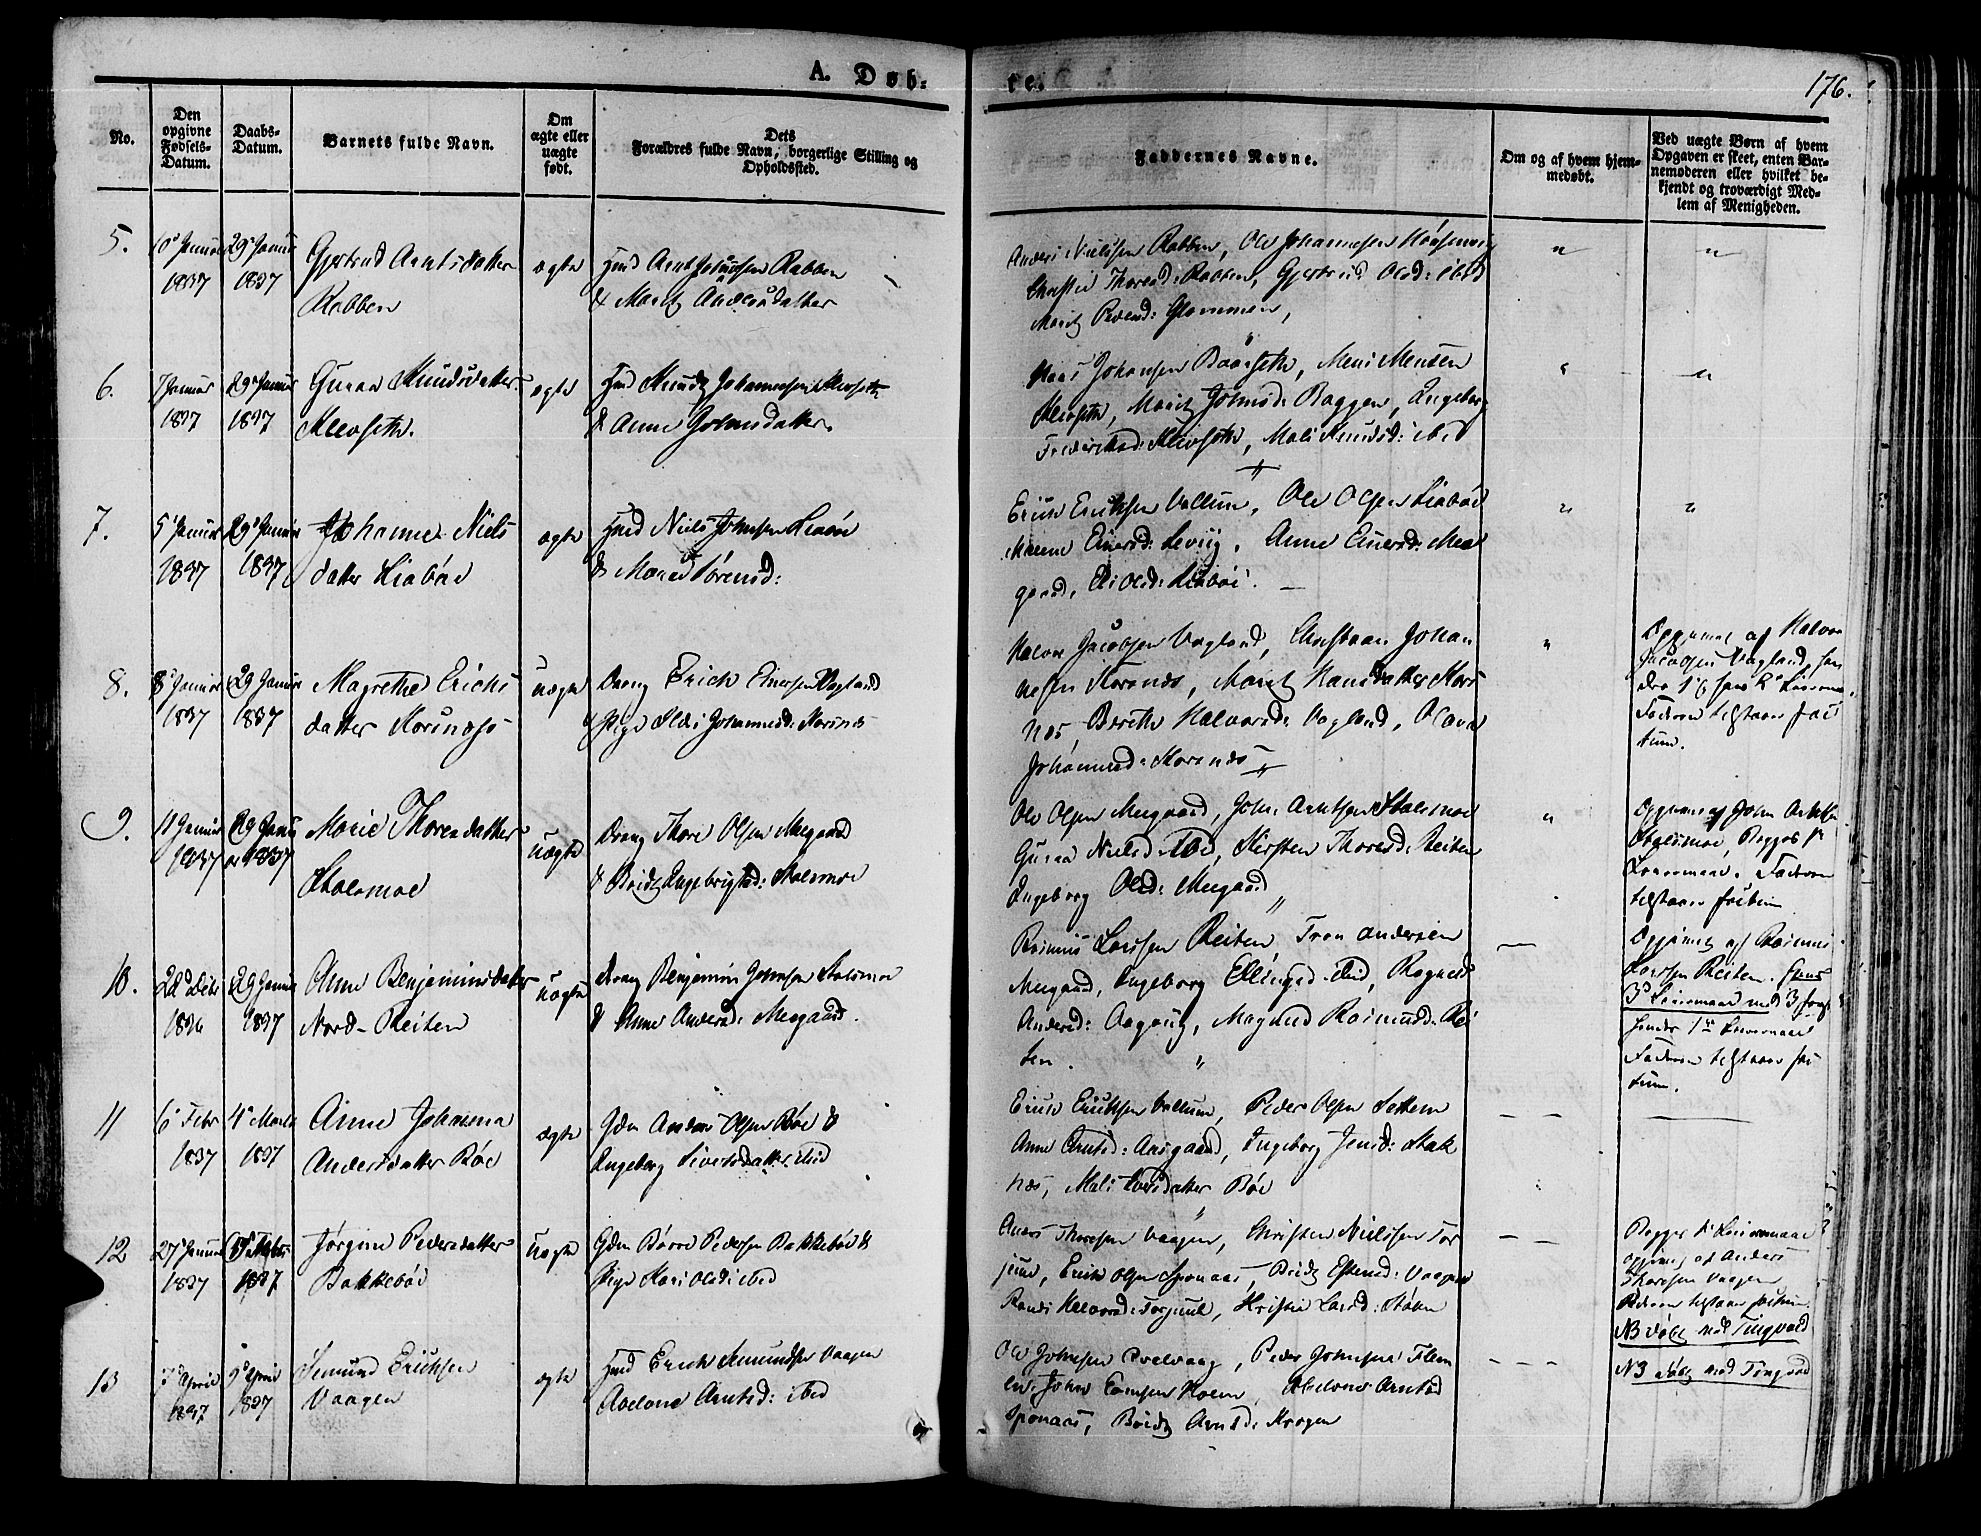 A. Døb=
re.
176.
No.
Den opgivne Fødsels-Datum.
Daabs-Datum.
Barnets fulde Navn.
Om ægte eller uægte født.
Dets Forældres fulde Navn, borgerlige Stilling og Opholdssted.
Faddernes Navne.
Om og af hvem hjemmedøbt.
Ved uægte Børn af hvem Opgaven er skeet, enten Barnemoderen eller hvilket bekjendt og troværdigt Medlem af Menigheden.
5.
10d Januar 1837
29d Januar 1837
Gjertrud Arntsdatter
Rabben
ægte
Hmd Arnt Johnsen Rabben
& Marit Andersdatter
Anders Nielsen Rabben, Ole Johannesen
Thoresd: Rabben, Gjertrud Olsd: ibid
Marit Pedersd: Glommen,
6.
7 Januar 1837
29d Januar 1837
Guraa Knudsdatter
Klevseth.
ægte
Hmd Knud Johannesen Klevseth
& Anne Johnsdatter.
Johansen Baaseth, Mons Monsen
Klevseth, Marit Johnsd: Baggen, Ingeborg
Klevseth, Mali Knudsd: ibid
7.
5d Januar 1837
29d Januar 1837
Johanne Niels
datter Liabøe
ægte
Hmd Niels Johnsen Liabøe
& Maren Sørensd:
Erich Erichsen Vullum, Ole Olsen Liabøe
Einersd: Anne Einersd: Mee
gaard, Eli Olsd: Liabøe.
8.
8d Januar 1837
29 Januar 1837
Magrethe Erichs
datter Korsnæs
uægte
Dreng Erich Einersen Vagland
& Pige Johannesd: Korsnæs
Halvor Jacobsen Vagland, Christian Johan
nesen Korsnæs, Marit Hansdatter Kors
næs Berethe Halvorsd: Vagland, Olava
Johannesd: Korsnæs
Opgivet af Halvor
Jacobsen Vagland,
Faderen tilstaaer fac
tum.
9.
11 Januar 1837
29 Januar 1837
Marie Thoresdatter
Stolsmoe
uægte
Dreng Thore Olsen Meegaard
& Brit Ingebrigtsd: Stolsmoe
Ole Olsen Meegaard, John Arntsen Stolsmoe
Guraa Nielsd: ibid, Kirsten Thoresd: Reiten
Ingeborg Olsd: Meegaard
Opgivet af John Arntsen
Stolsmoe, Begges 1ste
Leiermaal. Faderen
tilstaaer factum
10.
22d Debr 1836
29 Januar 1837
Anne Benjaminsdatter
Nord-Reiten
uægte
Dreng Benjamin Johnsen Stolsmoe
& Anne Andersd: Meegaard.
Rasmus Larssen Reiten Tron Andersen
Meegaard, Ingeborg Ellingsd: ibid, Ragnild
Andersd: Magnild Rasmusd: Rei
ten.
Opgivet af Rasmus
Larssen Reiten.
3d Leiermaal med 3
hendes 1ste Leiermaal
Faderen tilstaaer fac
tum.
11
6d Febr 1837
4d Marts 1837
Anne Johanna
Andersdatter Bøe
ægte
Gdm Anders Olsen Bøe &
Ingeborg Sivertsdatter ibid
Erich Erichsen Vullum, Peder Olsen Settem
Anne Arntsd: Aasgaard, Ingeborg Jensd: Stok
næs, Mali Bøe
12
27d Januar 1837
1837
Jørgine Pedersdatter
Bakkebøe
Uægte
Gdm Pedersen Bakkebøe &
Pige Kari Olsd: ibid
Anders Thoresen Vaagen, Christen Nielssen Tor
juul, Erich Olsen Sponaas, Brit Estensd: Vaagen
Randi Halvorsd: Torjuul, Kristie Larsd: Støkn
Begges 1ste Leiermaal
opgivet af Anders
Thoresen Vaagen
Faderen tilstaaer factum
NB døbt ved Tingvold
13
7d April 1837
9d April 1837
Semund Erichsen
Vaagen
ægte
Hmd Erich Semundsen Vaagen
Abelone Arntsd: ibid
Ole Johnsen Qvalvaag, Peder Johnsen Flem
John Holm, Abelone Arntsd
Sponaas, Brit Arntsd: Krogen
NB døbt ved Tingvold